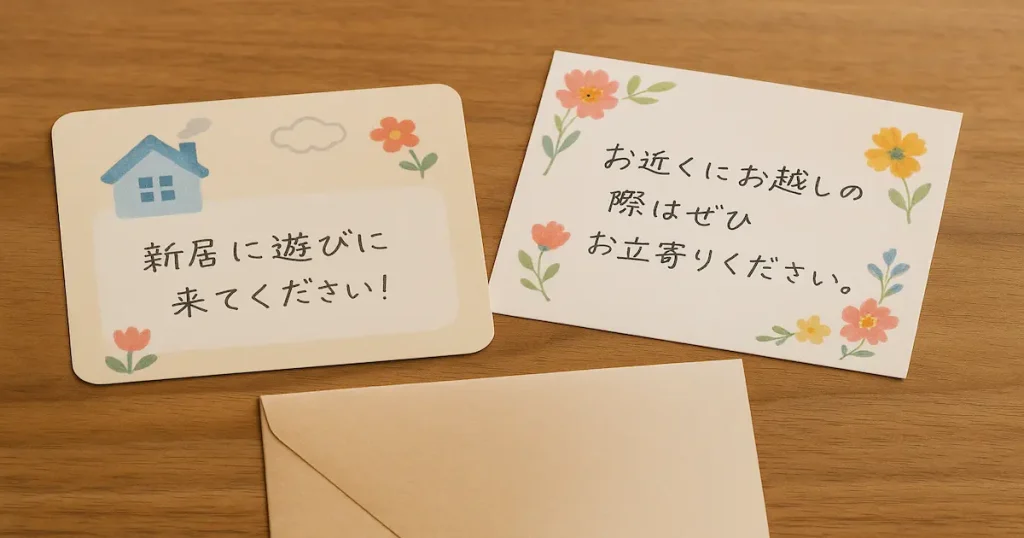 新居に遊びに
来てください!
お近くにお越しの
際はぜひ
お立寄りください。